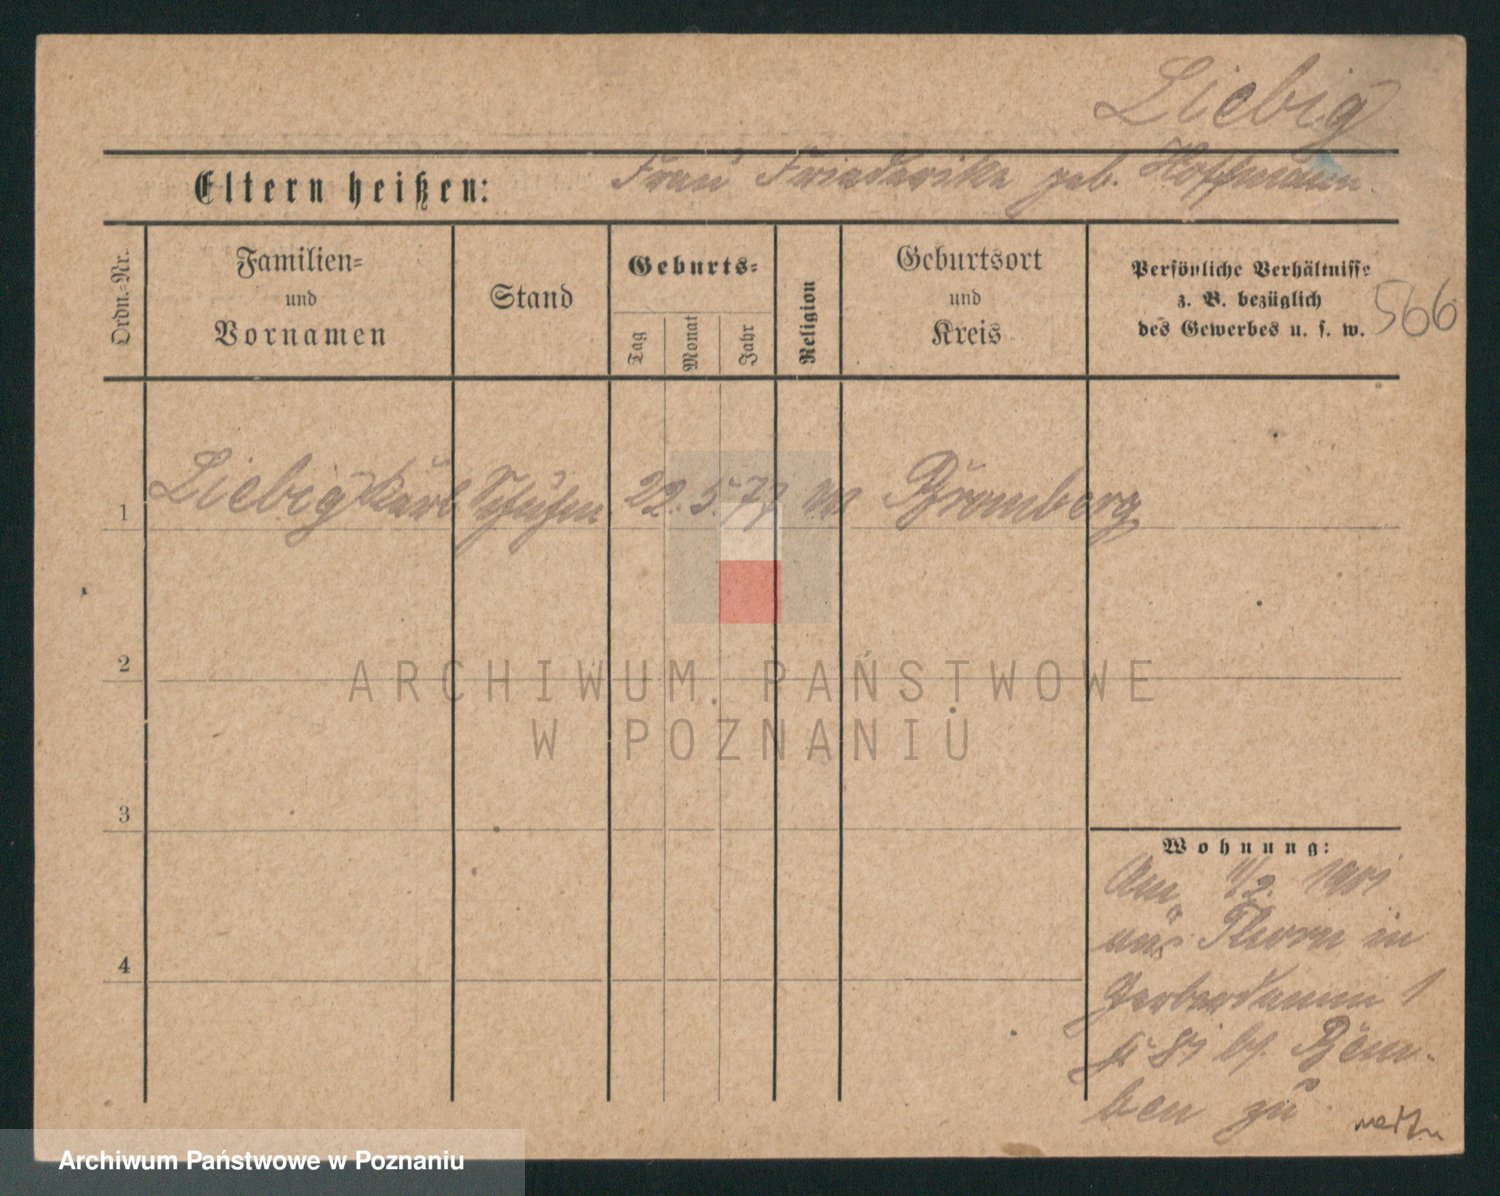 Liebig
Eltern heißen: Frau Friederike geb. Hoffmann
Ordn.-Nr.
Familien-
und
Vornamen
Stand
Geburts-
Tag
Monat
Jahr
Religion
Geburtsort
und
Kreis
Persönliche Verhältnisse
z. B. bezüglich
des Gewerbes u. s. w.
566
1 Liebig Karl 22. 5. 77 Bromberg
2
ARCHIWUM PAŃSTWOWE
W POZNANIU
3
4
Wohnung:
Am 11/2. 1901
aus Thorn in
Gerberdamm 1
bei
zu
Archiwum Państwowe w Poznaniu